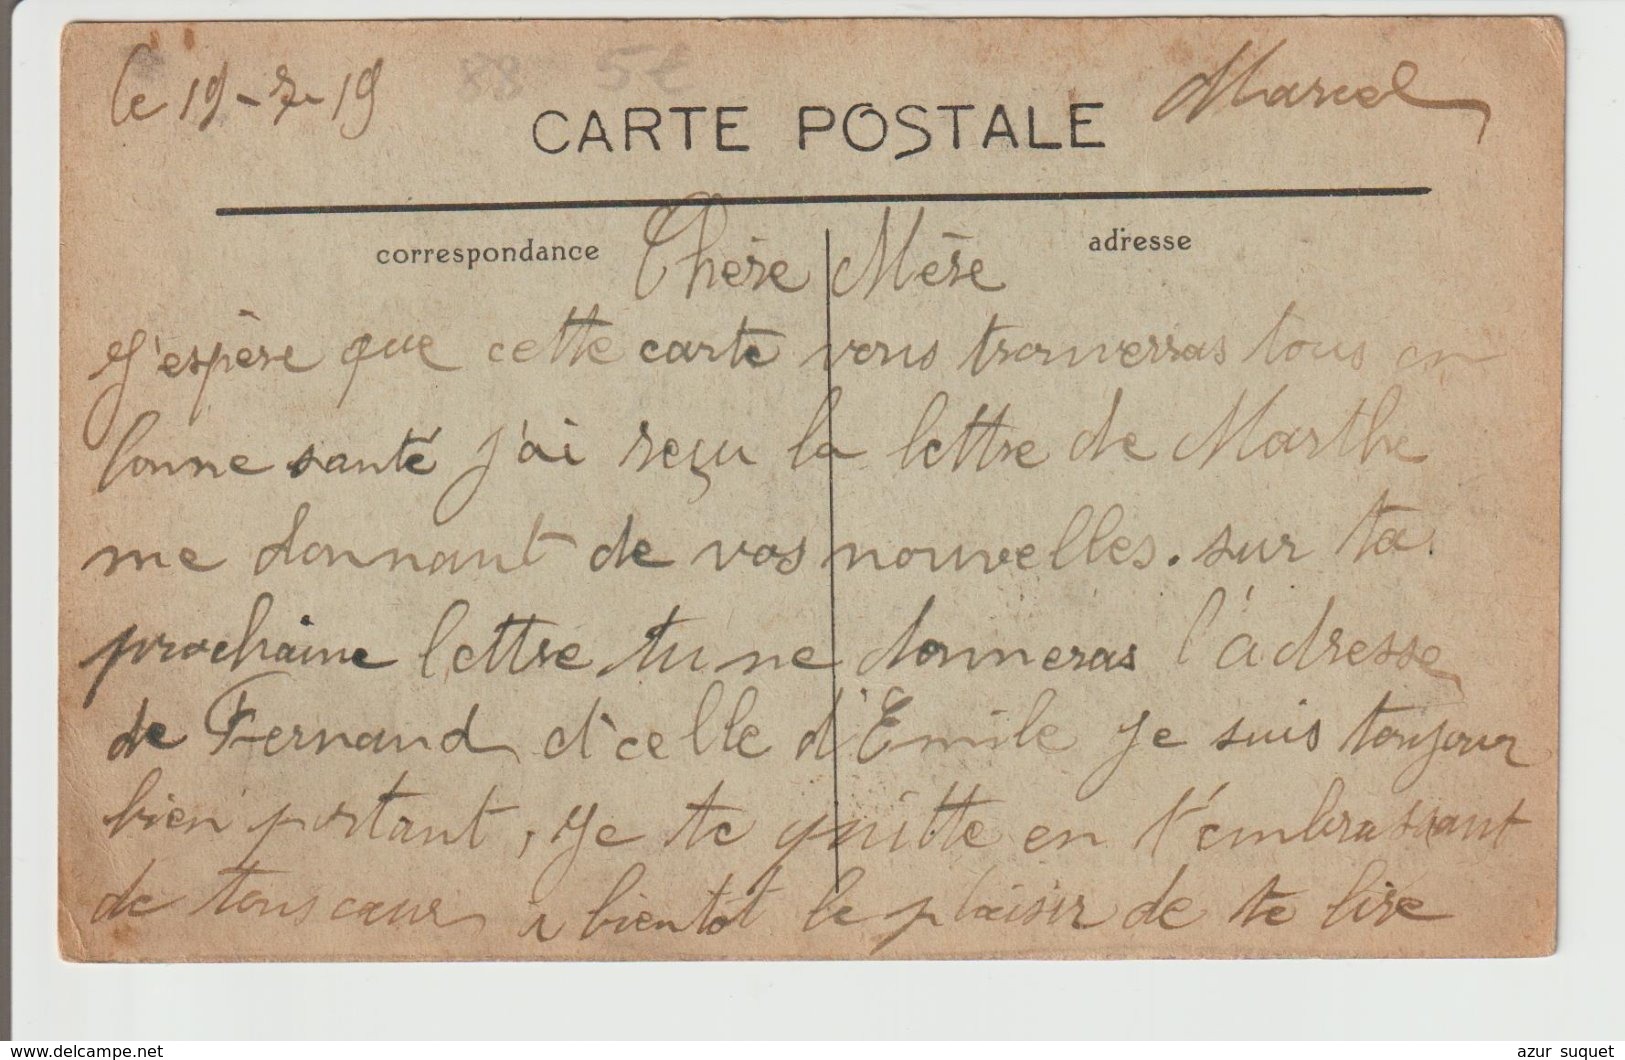 le 19-7-19
88 5€
Marcel
CARTE POSTALE
correspondance
adresse
Chère Mère
J'espère que cette carte vous trouverras tous en
bonne santé j'ai reçu la lettre de Marthe
me donnant de vos nouvelles. sur ta
prochaine lettre tu me donneras l'adresse
de Fernand et celle d'Emile je suis toujour
bien portant, je te quitte en t'embrassant
de tous cœur a bientôt le plaisir de te lire
delcampe.net
azur_suquet